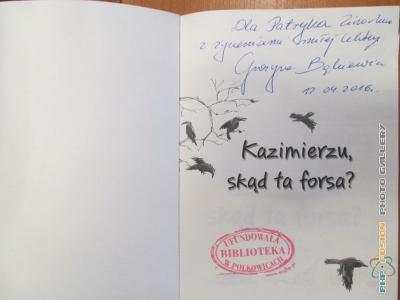 Dla Patryka
z życzeniami miłej lektury
Grażyna Bąkiewicz
17.04.2016r.
Kazimierzu,
skąd ta forsa?
UFUNDOWAŁA
BIBLIOTEKA
W POLKOWICACH
PHP-FUSION PHOTO GALLERY